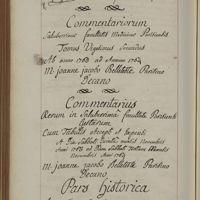 Commentariorum
Saluberrimæ facultatis Medicinæ Parisiensis
Tomus Vigesimus Secundus
Ab anno 1762 ad Annum 1764
M. joanne jacobo Bellteste Parisino
Decano
Commentarius
Rerum in Saluberrima facultate Parisiensi
Gestarum
Cum Tabulis Accepti et Expensi
A Die Sabbati Novembris
Anni 1762 ad Diem Sabbati Mensis
Novembris Anni 1763
M. joanne jacobo Bellteste Parisino
Decano
Pars historica